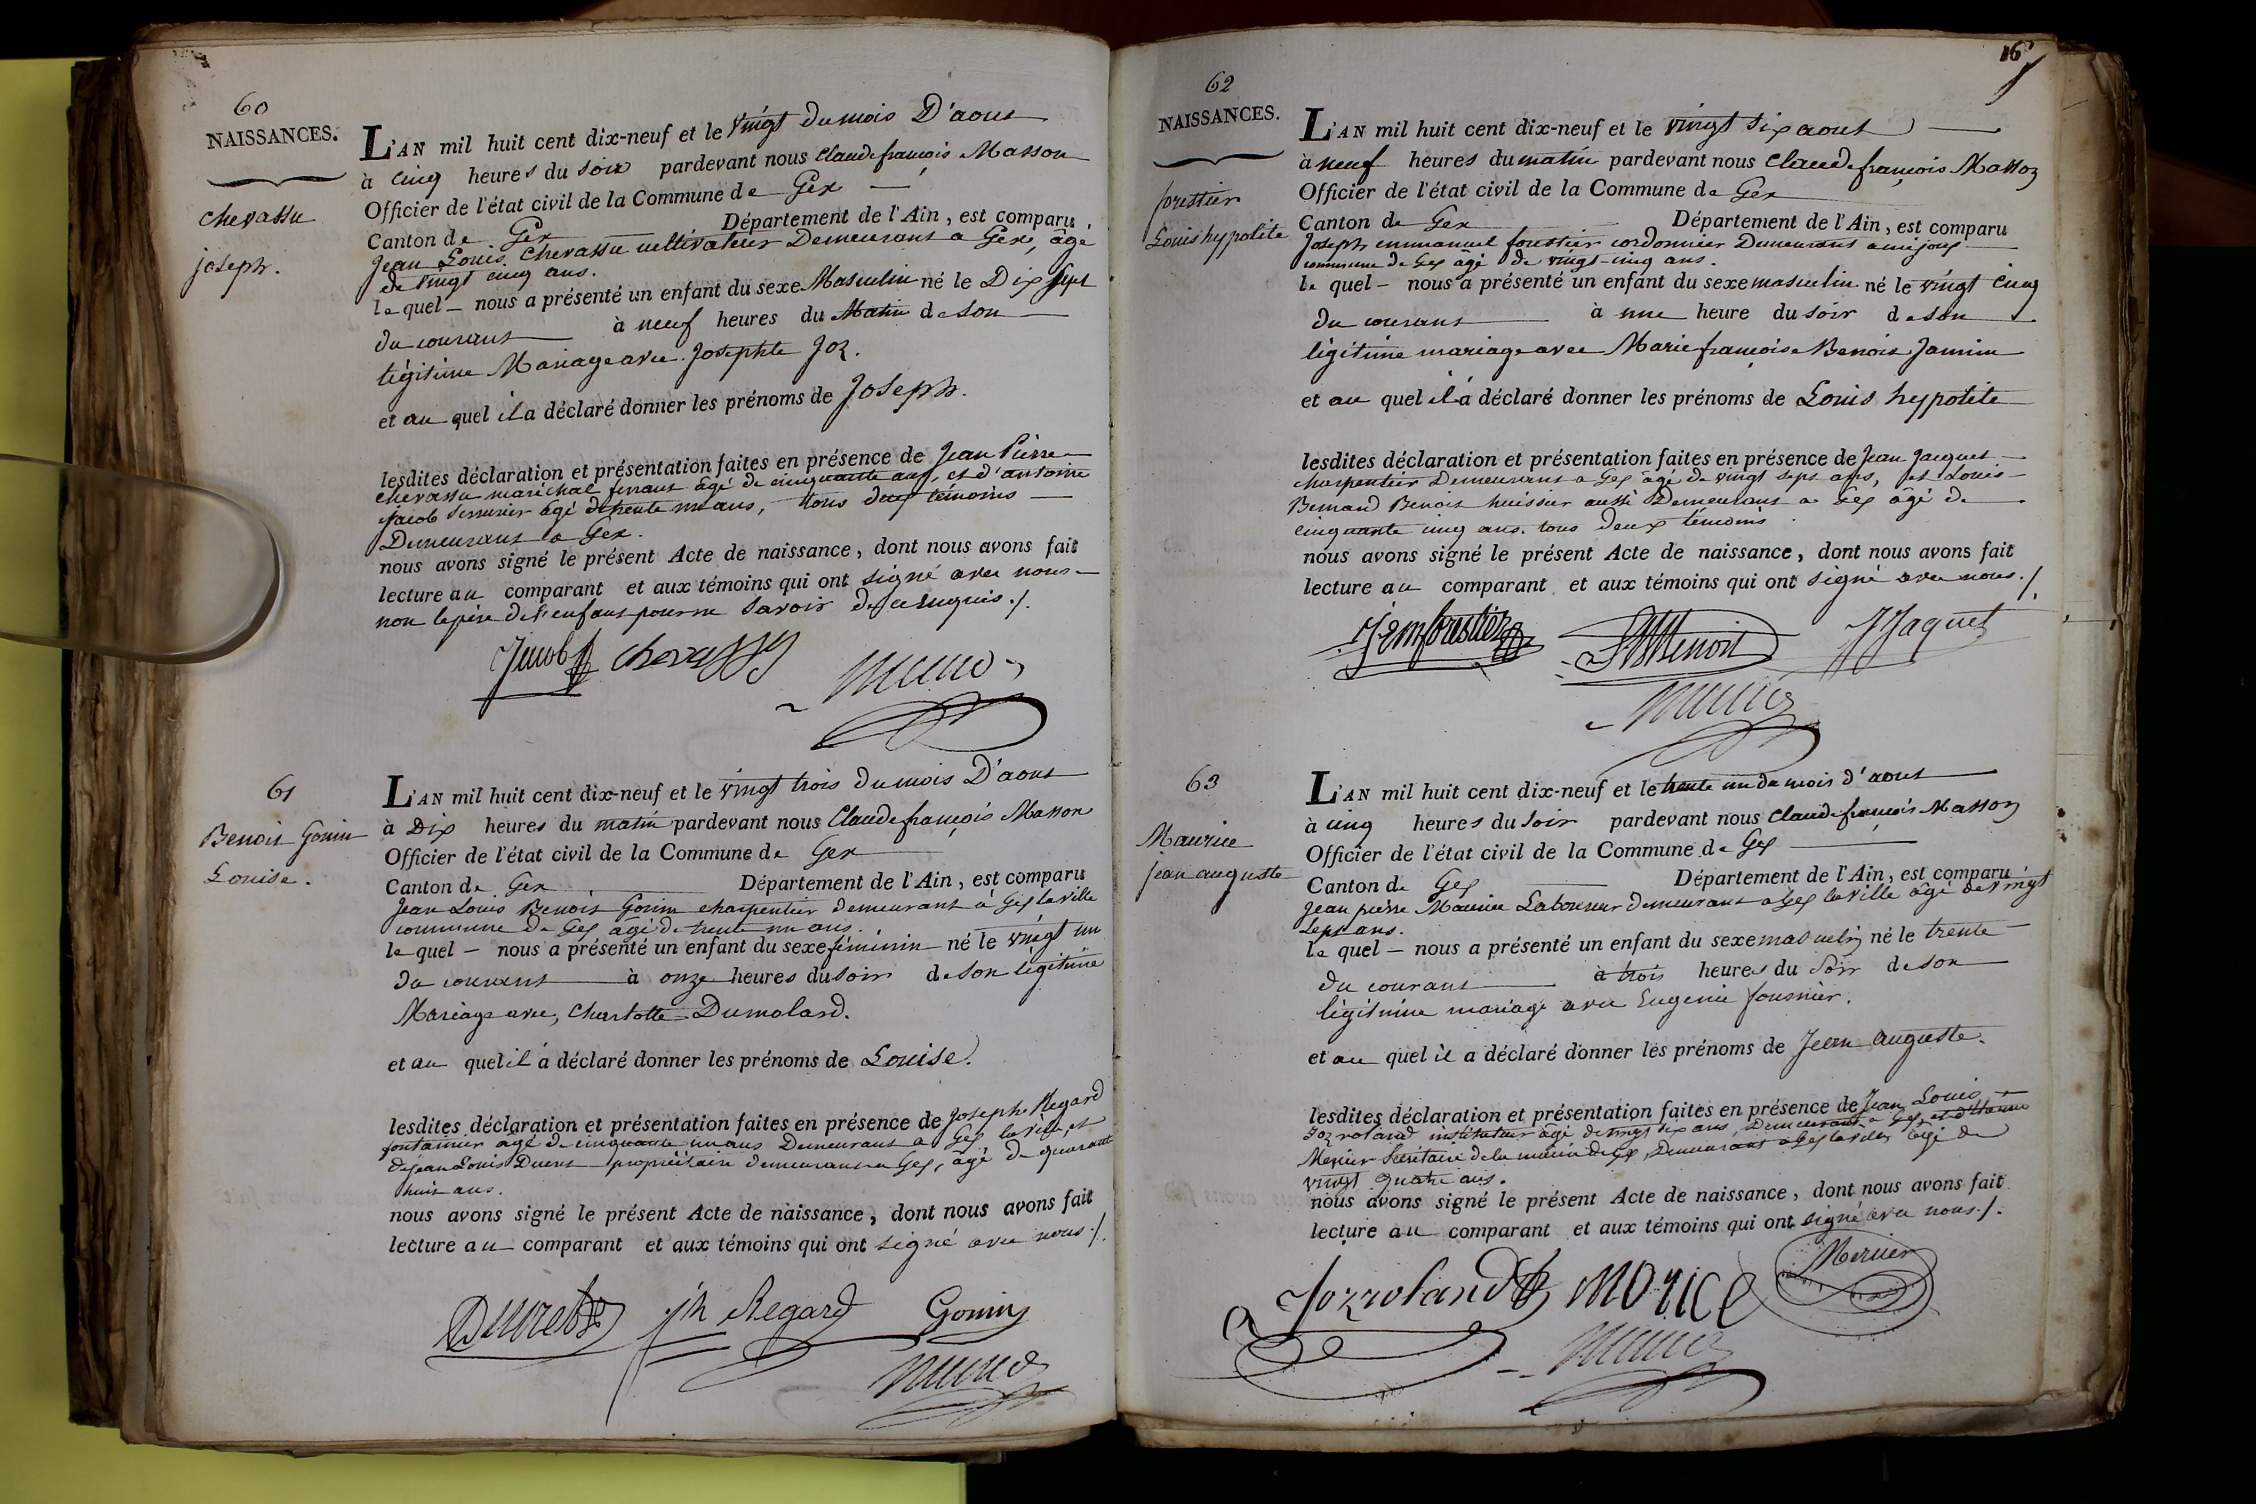 60
NAISSANCES.
Chevassu
joseph.
L'AN mil huit cent dix-neuf et le vingt du mois D'aout
à cinq heures du soir pardevant nous Claude françois Masson
Officier de l'état civil de la Commune de Gex
Canton de Gex Département de l'Ain, est comparu
Jean Louis Chevassu cultivateur Demeurant a Gex, âgé
de vingt cinq ans.
le quel nous a présenté un enfant du sexe Masculin né le Dix sept
du courant à neuf heures du Matin de son
légitime Mariage avec Josephte Joz.
et au quel il a déclaré donner les prénoms de Joseph.
lesdites déclaration et présentation faites en présence de Jean Pierre
Chevassu maréchal ferrant âgé de cinquante ans, et d'antoine
jacob serrurier âgé de trente un ans, tous deux témoins
Demeurant a Gex.
nous avons signé le présent Acte de naissance, dont nous avons fait
lecture au comparant et aux témoins qui ont signé avec nous
non le père de l'enfant pour ne savoir de ce enquis ./.
Jacob Chevassu
61
Benoit Gonin
Louise.
L'AN mil huit cent dix-neuf et le vingt trois du mois D'aout
à Dix heures du matin pardevant nous Claude françois Masson
Officier de l'état civil de la Commune de Gex
Canton de Gex Département de l'Ain, est comparu
Jean Louis Benoit Gonin charpentier demeurant a Gex la ville
commune de Gex âgé de trente un ans.
le quel nous a présenté un enfant du sexe féminin né le vingt un
du courant à onze heures du soir de son légitime
Mariage avec, Charlotte Dumolard.
et au quel il a déclaré donner les prénoms de Louise.
lesdites déclaration et présentation faites en présence de Joseph Regard
fontainier âgé de cinquante un ans Demeurant a Gex la ville, et
de Jean Louis Duret propriétaire demeurant a Gex, âgé de quarante
huit ans.
nous avons signé le présent Acte de naissance, dont nous avons fait
lecture au comparant et aux témoins qui ont signé avec nous ./.
Duret jh Regard Gonin
16
62
NAISSANCES.
forestier
Louis hypolite
L'AN mil huit cent dix-neuf et le vingt six aout
à neuf heures du matin pardevant nous Claude françois Masson
Officier de l'état civil de la Commune de Gex
Canton de Gex Département de l'Ain, est comparu
Joseph emmanuel forestier cordonnier Demeurant a mijoux
commune de Gex âgé de vingt-cinq ans.
le quel nous a présenté un enfant du sexe masculin né le vingt cinq
du courant à une heure du soir de son
légitime mariage avec Marie françoise Benoit Jannin
et au quel il a déclaré donner les prénoms de Louis hypolite
lesdites déclaration et présentation faites en présence de Jean Jacquet
charpentier Demeurant a Gex âgé de vingt sept ans, et Louis
Bernard Benoit huissier aussi Demeurant a Gex âgé de
cinquante cinq ans. tous deux témoins
nous avons signé le présent Acte de naissance, dont nous avons fait
lecture au comparant et aux témoins qui ont signé avec nous ./.
J em forestier Benoit J Jaquet
63
Maurice
jean auguste
L'AN mil huit cent dix-neuf et le trente un du mois d'aout
à cinq heures du soir pardevant nous Claude françois Masson
Officier de l'état civil de la Commune de Gex
Canton de Gex Département de l'Ain, est comparu
Jean pierre Maurice Laboureur demeurant a Gex la ville âgé de vingt
sept ans.
le quel nous a présenté un enfant du sexe masculin né le trente
du courant à trois heures du soir de son
légitime mariage avec Eugenie fournier.
et au quel il a déclaré donner les prénoms de Jean auguste.
lesdites déclaration et présentation faites en présence de Jean Louis
Joz roland instituteur âgé de vingt six ans, Demeurant a Gex, et
Mercier Secrétaire de la mairie de Gex, Demeurant a Gex la ville, âgé de
vingt quatre ans.
nous avons signé le présent Acte de naissance, dont nous avons fait
lecture au comparant et aux témoins qui ont signé avec nous ./.
Jozroland Morice Mercier